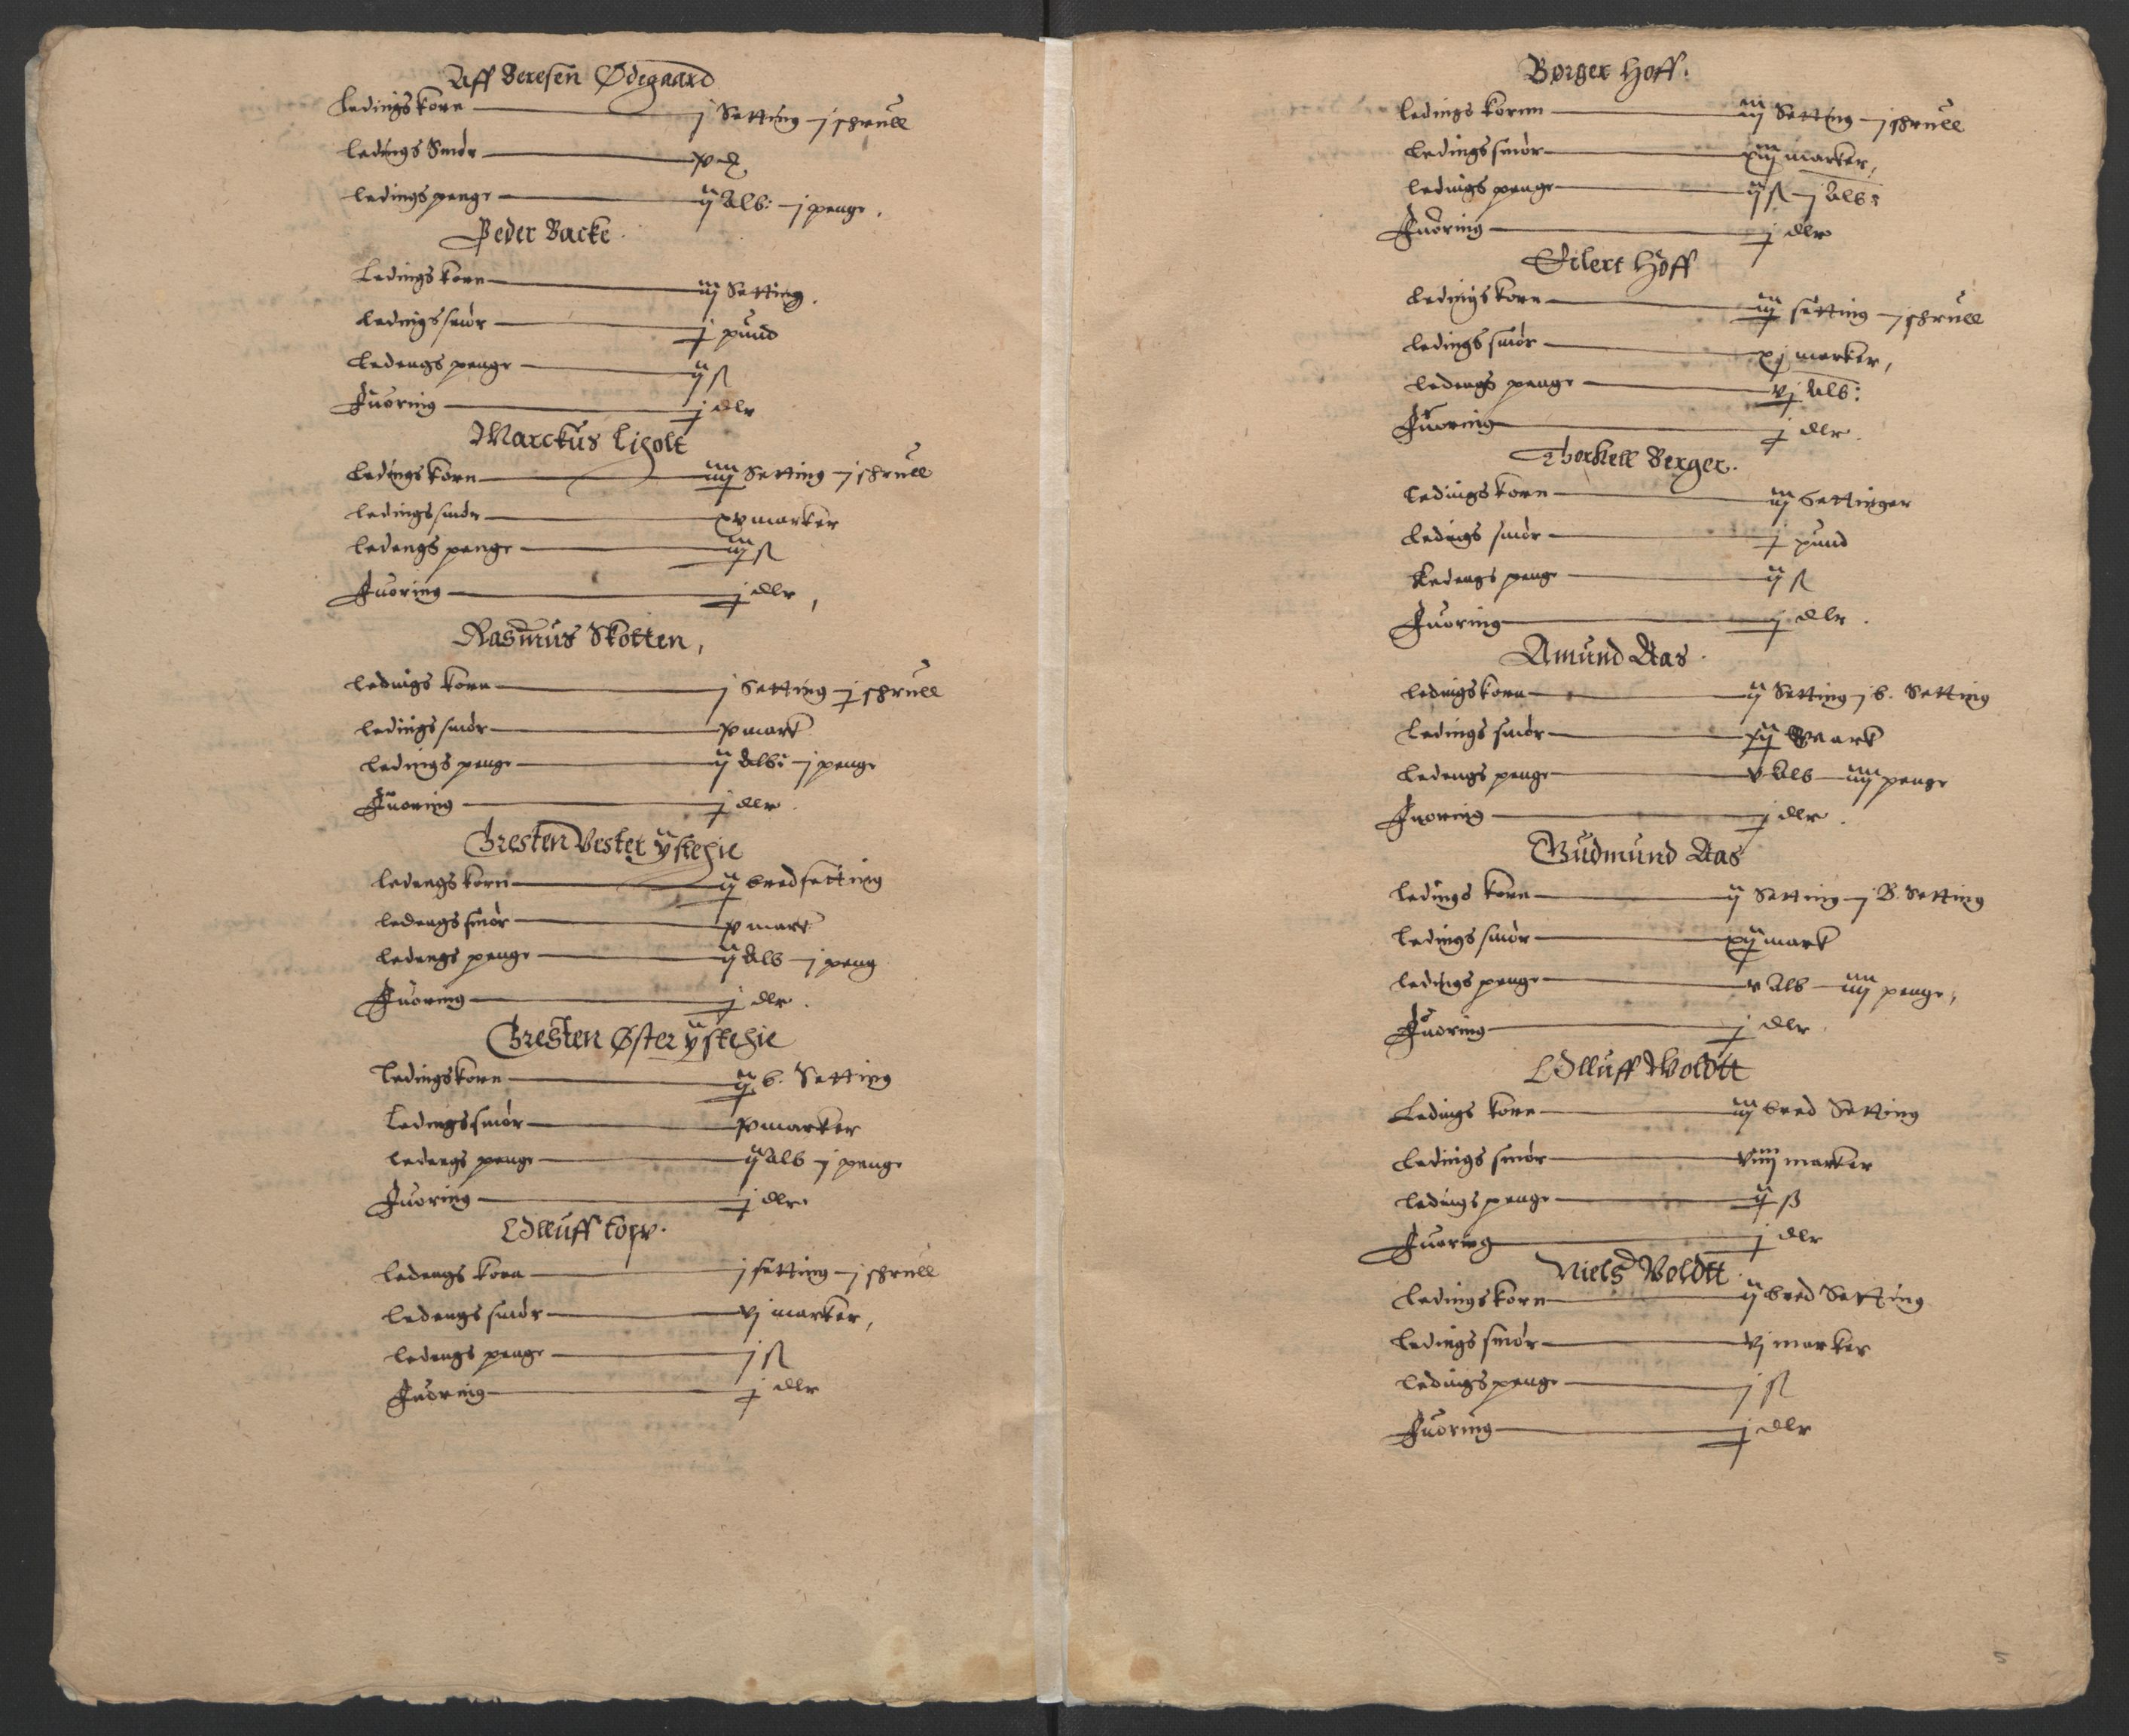 Aff Beresen Ødegaard
Ledingskorn — j Setting — j skrull
Ledings Smør — xv
ledingspenge — ij Alb: — j penge.
Peder Backe.
Ledingskorn — iij Setting.
Ledingssmør — j pund
Ledengs penge — ij ß
Fuoring — j dlr
Marckus
Ledingskorn — iiij Setting — j skrull
ledingssmør — xv marker
ledengs penge — iij ß
Fuoring — j dlr,
Rasmus Skotten,
ledings korn — j Setting — j skrull
ledingssmør — xv mark
ledings penge — ij Alb: — j penge
Fuoring — j dlr.
Gresten Vester
ledengs korn — ij bredsetting
ledengs smør — xv mark
ledengs penge — ij Alb — j peng
Fuoring — j dlr.
Gresten Øster
Ledingskorn — ij b. Setting
Ledingssmør — xv marker
ledengs penge — ij Alb — j penge
Fuoring — j dlr
Olluff
ledengs korn — j setting — j skrull
ledengs smør — vj marker,
ledengs penge — j ß
Fuoring — j dlr
Børger Hoff.
ledings kornn — iij Setting — j skrull
ledingssmør — xiij marker,
ledings penge — ij ß — j Alb:
Fuoring — j dlr
Eilert Hoff
ledingskorn — iij setting — j skrull
ledingssmør — xj marker,
ledengs penge — vj Alb:
Fuoring — j dlr.
Thorkell Berger.
ledings korn — iij Settinger
ledings smør — j pund
Ledengs penge — ij ß
Fuoring — j dlr.
Amund Aas.
ledingskorn — ij Setting — j b. Setting
Ledings smør — xij Mark
Ledengs penge — v Alb — iiij penge
Fuoring — j dlr.
Gudmund Aas
ledings korn — ij Setting — j B. Setting
ledings smør — xij mark
ledings penge — v Alb — iiij penge,
Fuoring — j dlr.
Olluff Woldtt
Ledings korn — iij bred Setting
ledings smør — viiij marker
ledings penge — ij ß
Fuoring — j dlr
Niels Voldtt
ledingskorn — ij bred Setting
ledings smør — vj marker
ledings penge — j ß
Fuoring — j dlr
5